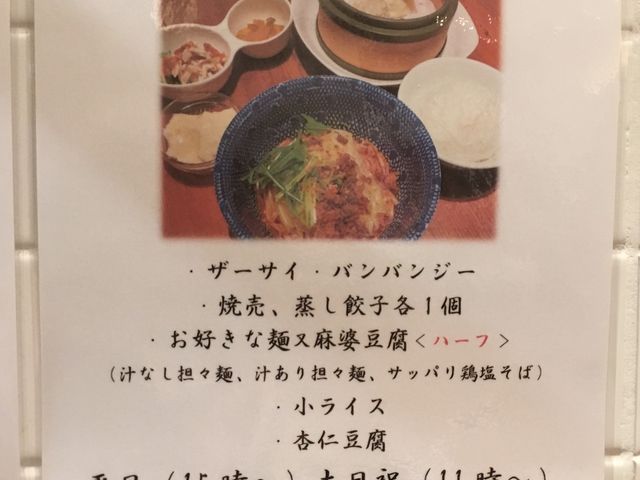 ・ザーサイ・バンバンジー
・焼売、蒸し餃子各1個
・お好きな麺又麻婆豆腐<ハーフ>
(汁なし担々麺、汁あり担々麺、サッパリ鶏塩そば)
・小ライス
・杏仁豆腐
平日(15時～)土日祝(11時～)